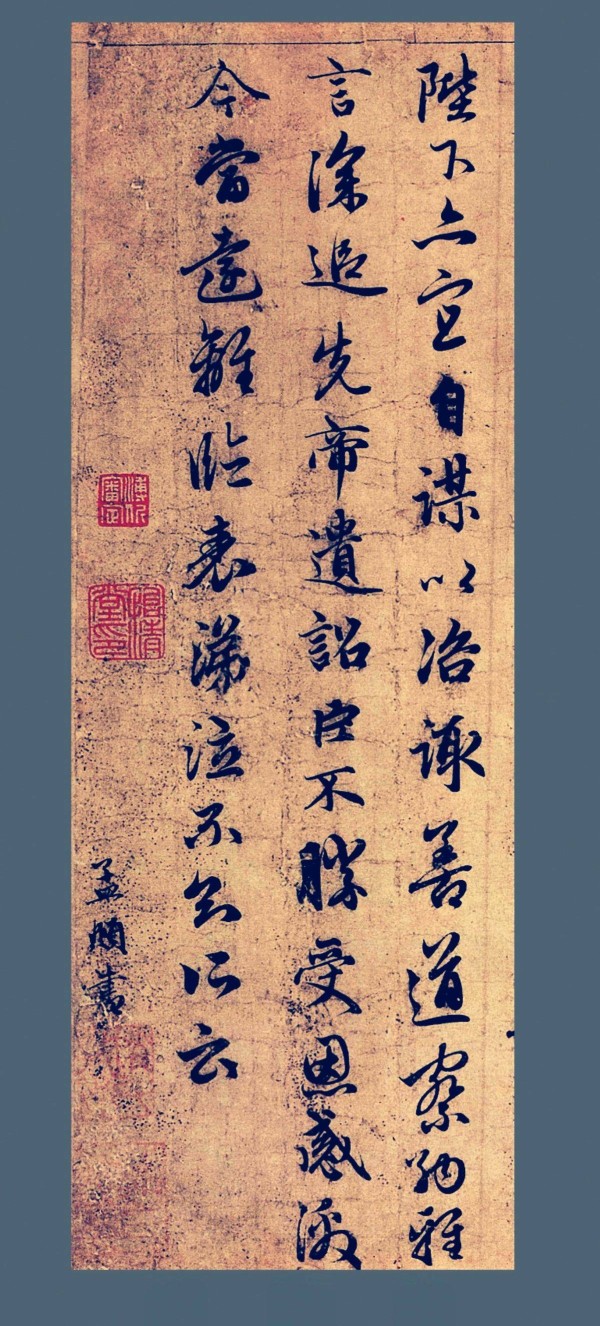 陛下亦宜自謀以咨諏善道察納雅
言深追先帝遺詔臣不勝受恩感激
今當遠離臨表涕泣不知所云
孟頫書